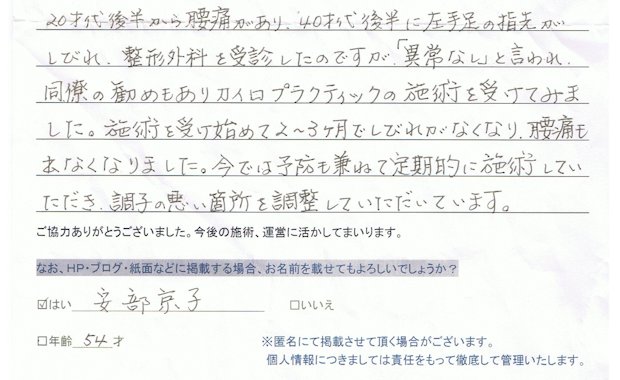 20才代後半から腰痛があり、40才代後半に左手足の指先が
しびれ、整形外科を受診したのですが、「異常なし」と言われ、
同僚の勧めもありカイロプラクティックの施術を受けてみま
した。施術を受け始めて2～3ヶ月でしびれがなくなり、腰痛も
出なくなりました。今では予防も兼ねて定期的に施術してい
ただき、調子の悪い箇所を調整していただいています。
ご協力ありがとうございました。今後の施術、運営に活かしてまいります。
なお、HP・ブログ・紙面などに掲載する場合、お名前を載せてもよろしいでしょうか？
☑はい 安部京子 □いいえ
□年齢 54 才 ※匿名にて掲載させて頂く場合がございます。
個人情報につきましては責任をもって徹底して管理いたします。